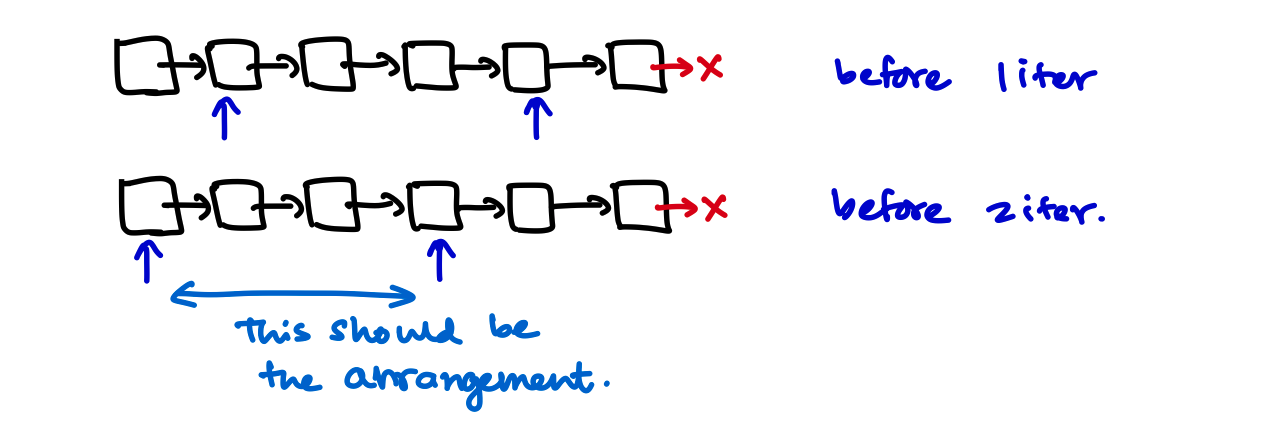 before 1 iter
before 2 iter.
This should be
the arrangement.